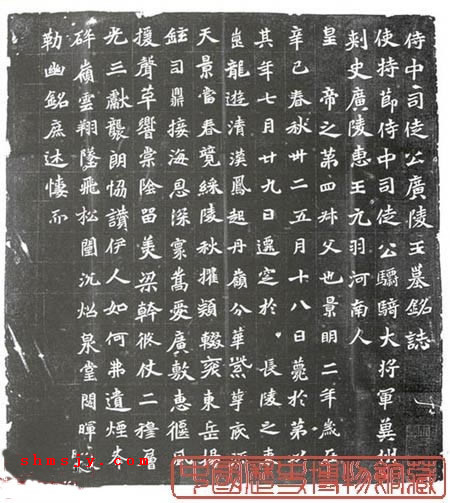 侍中司徒公廣陵王墓銘誌
使持節侍中司徒公驃騎大將軍冀州
刺史廣陵惠王元羽河南人
皇帝之第四叔父也景明二年歲在
辛巳春秋卅二五月十八日薨於第以
其年七月廿九日遷窆於長陵之東
崗龍遊清漢鳳起丹嶺分華紫萼底
天景當春競綵陵秋擢穎輟袞東岳揚
鉉司鼎接海恩深蒙嵩愛廣敷惠偃風
援聲草響棠陰留美梁幹俄仗二穆層
光三獻襲朗協讚伊人如何弗遺煙
碎嶺雲翔墜飛松闈沉炤泉堂閟暉
勒幽銘庶述懷
中国歷史博物館藏